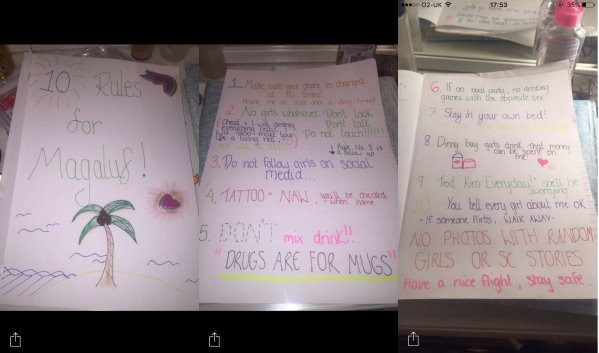 10 Rules
for
Magaluf!
1. Make sure your phone is charged
at All times!
2. No girls whatsoever Don't look
Don't talk
Do not touch!!!!!!
(Cheat + I will destroy
everything
be a living hell.)
↓ Rule No 3 is
a follow up
3. Do not follow girls on social
media...
4. TATTOO = NAW, you'll be checked
when home
5. DON'T mix drink!!
"DRUGS ARE FOR MUGS"
02-UK
17:53
38%
6. If on road party, no drinking
games with the opposite sex.
7. Stay in your own bed!
8. Dinny buy girls drink that money
can be spent on
me
9. Text Kim Everyday! She'll be
worrying
10. You tell every girl about me ok
- If someone flirts, WALK AWAY-
NO PHOTOS WITH RANDOM
GIRLS OR SC STORIES
Have a nice flight, stay safe